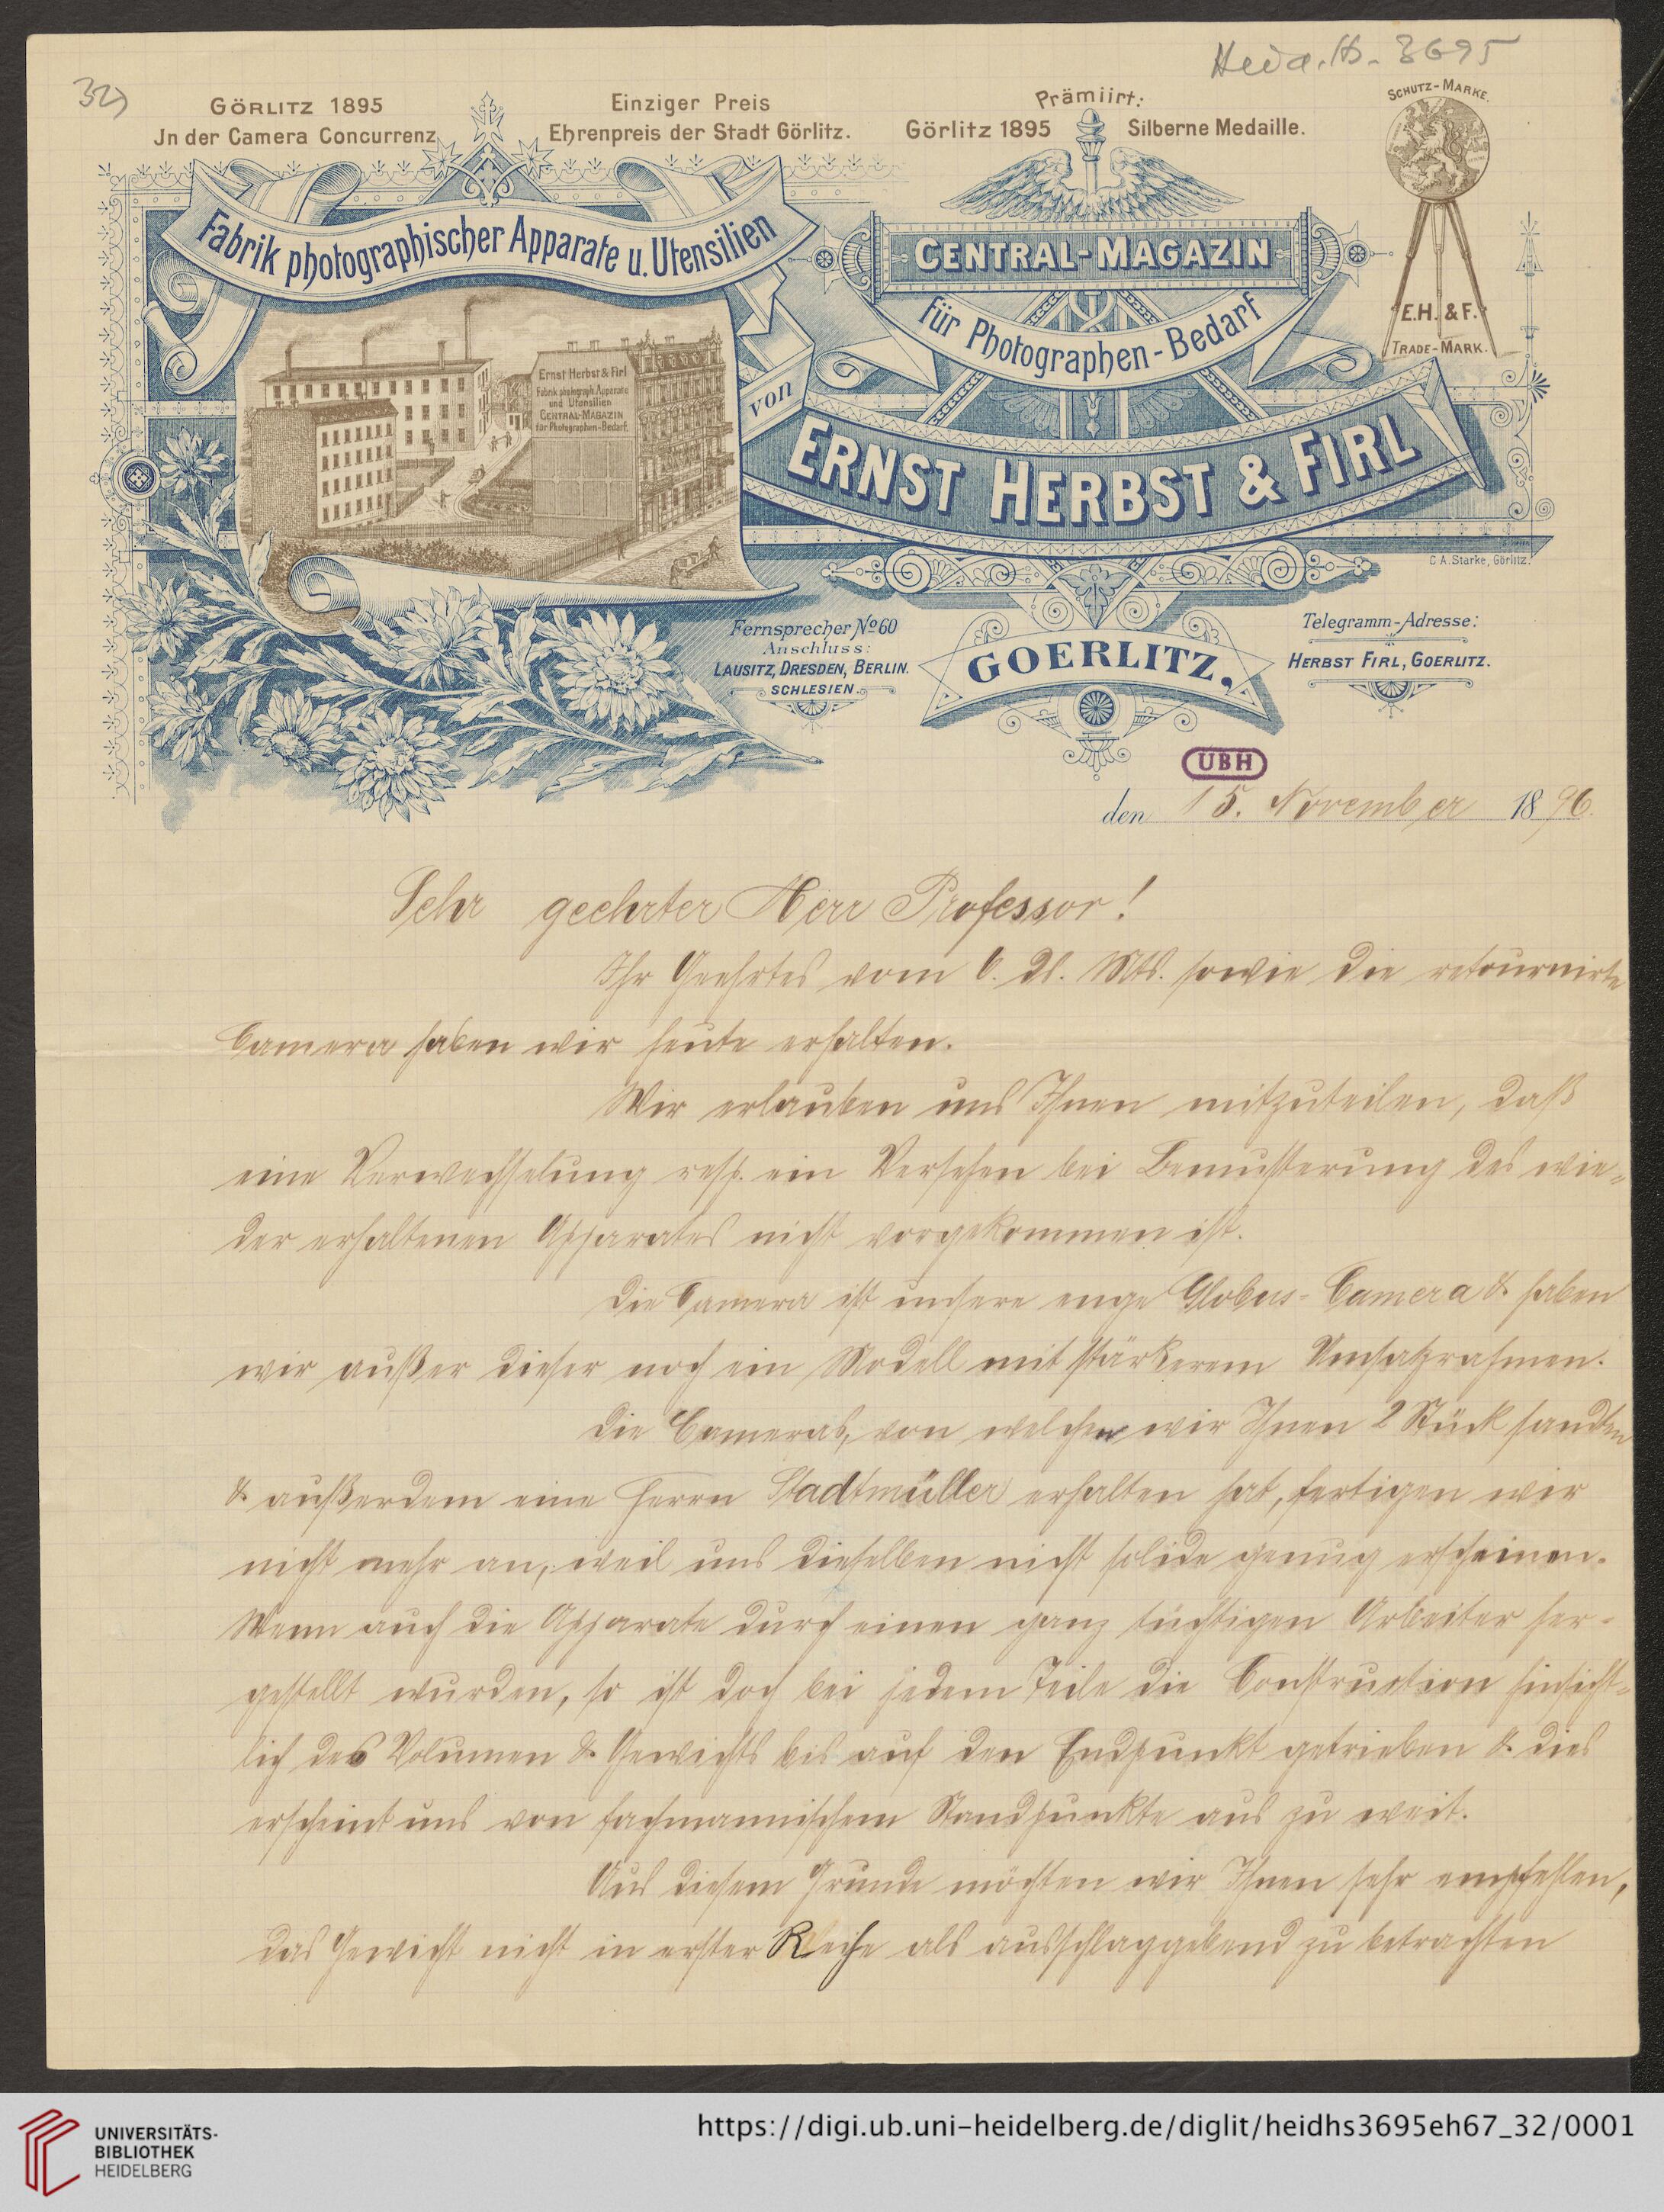 Heid. Hs. 3695
32)
GÖRLITZ 1895
Jn der Camera Concurrenz
Einziger Preis
Ehrenpreis der Stadt Görlitz.
Prämiirt:
Görlitz 1895
Silberne Medaille.
SCHUTZ-MARKE.
E.H. & F.
TRADE-MARK.
Fabrik photographischer Apparate u. Utensilien
Ernst Herbst & Firl
Fabrik photograph. Apparate
und Utensilien
CENTRAL-MAGAZIN
für Photographen-Bedarf.
von
CENTRAL-MAGAZIN
für Photographen-Bedarf
ERNST HERBST & FIRL
C.A. Starke, Görlitz.
Fernsprecher No 60
Anschluss:
LAUSITZ, DRESDEN, BERLIN.
SCHLESIEN.
GOERLITZ,
Telegramm-Adresse:
HERBST FIRL, GOERLITZ.
UBH
den 15. November 1896.
Sehr geehrter Herr Professor!
Ihr Geehrtes vom 6. ds. Mts. sowie die retournirte
Camera haben wir heute erhalten.
Wir erlauben uns Ihnen mitzuteilen, daß
eine Verwechselung resp. ein Versehen bei Bemusterung des wie-
der erhaltenen Apparates nicht vorgekommen ist.
Die Camera ist unsere enge Globus-Camera & haben
wir außer dieser noch ein Modell mit stärkerem Umsatzrahmen.
Die Cameras, von welchen wir Ihnen 2 Stück sandten
& außerdem eine Herrn Stadtmüller erhalten hat, fertigen wir
nicht mehr an, weil uns dieselben nicht solide genug erscheinen.
Wenn auch die Apparate durch einen ganz tüchtigen Arbeiter her-
gestellt wurden, so ist doch bei jedem Teile die Construction hinsicht-
lich des Volumen & Gewichts bis auf den Endpunkt getrieben & dies
erscheint uns von fachmannischem Standpunkte aus zu weit.
Aus diesem Grunde möchten wir Ihnen sehr empfehlen,
das Gewicht nicht in erster Reihe als ausschlaggebend zu betrachten
UNIVERSITÄTS-
BIBLIOTHEK
HEIDELBERG
https://digi.ub.uni-heidelberg.de/diglit/heidhs3695eh67_32/0001